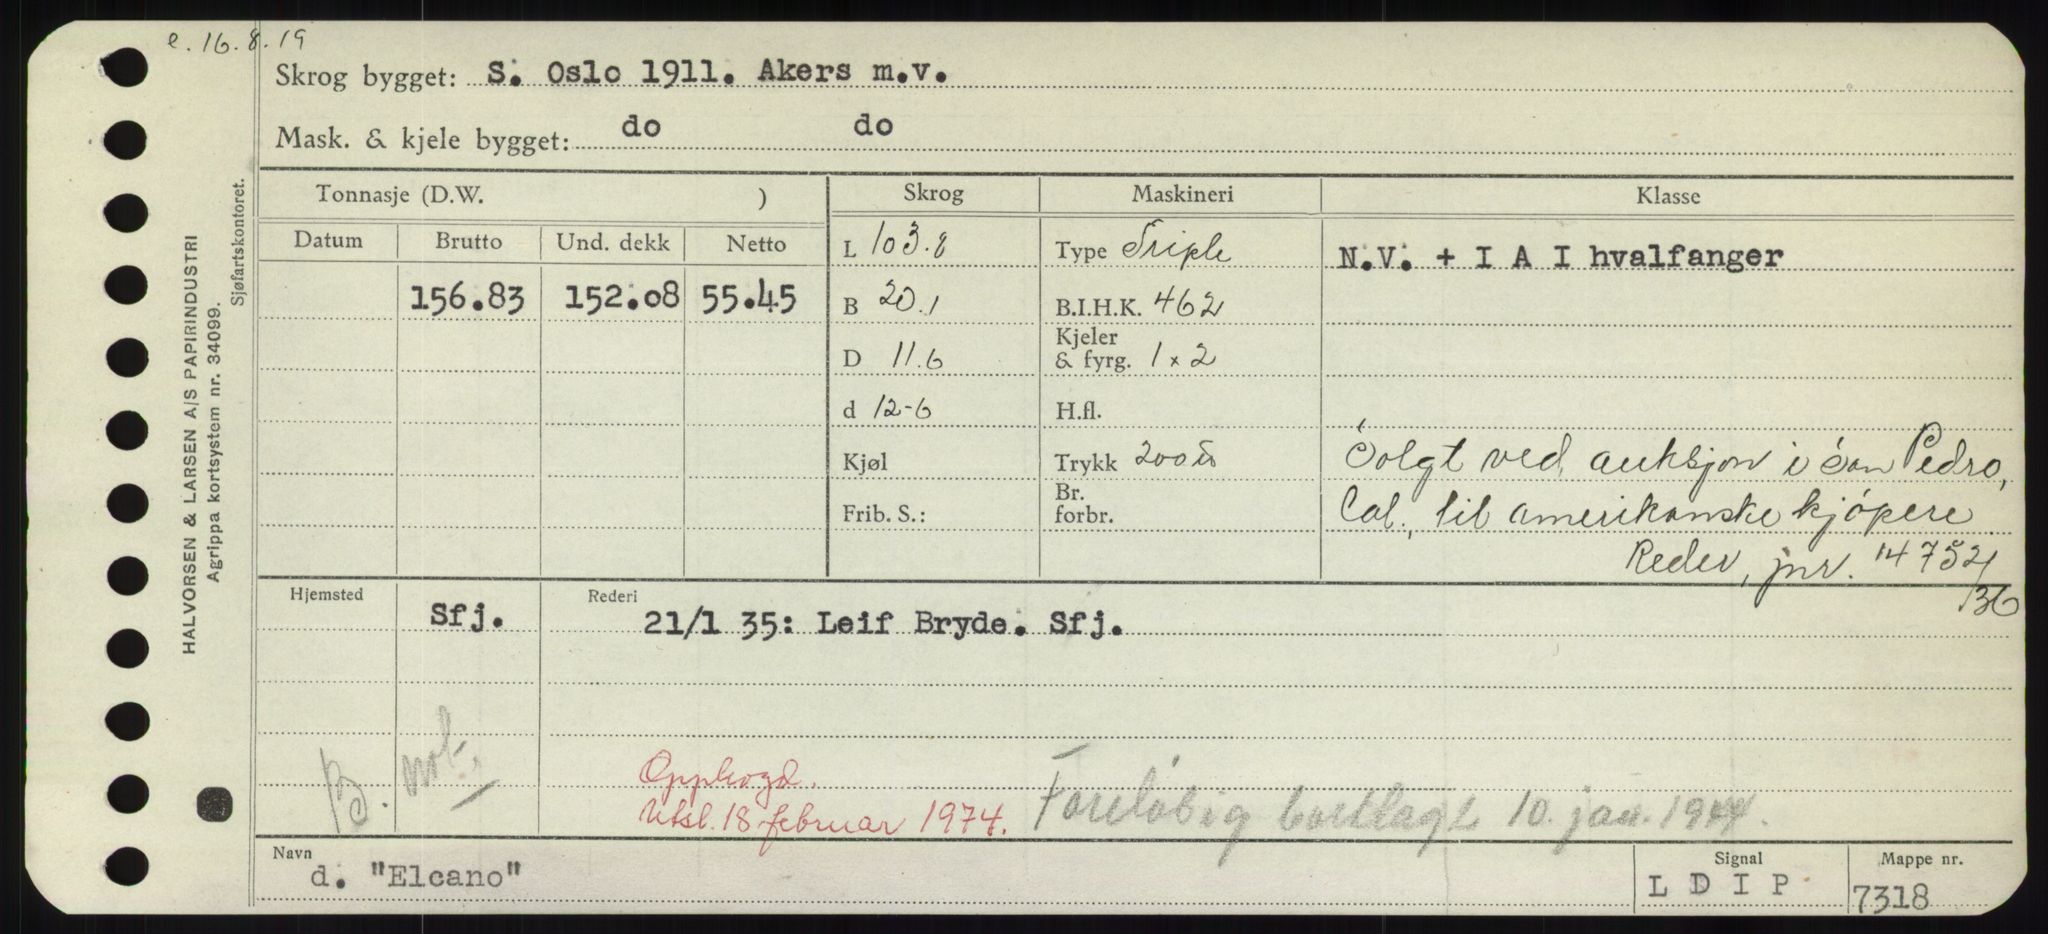 e. 16.8.19
Skrog bygget: S. Oslo 1911. Akers m.v.
Mask. & kjele bygget: do do
HALVORSEN & LARSEN A/S PAPIRINDUSTRI
Agrippa kortsystem nr. 34099.
Sjøfartskontoret.
Tonnasje (D.W. ) Skrog Maskineri Klasse
Datum Brutto Und. dekk Netto
L 103.8 Type Triple N.V. + I A I hvalfanger
156.83 152.08 55.45 B 20.1 B.I.H.K. 462
D 11.6 Kjeler & fyrg. 1 x 2
d 12-6 H.fl.
Kjøl Trykk 200 Solgt ved auksjon i San Pedro,
Frib. S.: Br. forbr. Cal., til amerikanske kjøpere
Reder, jnr. 14752/36
Hjemsted Sfj. Rederi 21/1 35: Leif Bryde. Sfj.
B. not.
Opphogd.
Utsl. 18 februar 1974. Foreløbig bortlagt 10. jan. 1944.
Navn d. "Elcano" Signal L D I P Mappe nr. 7318